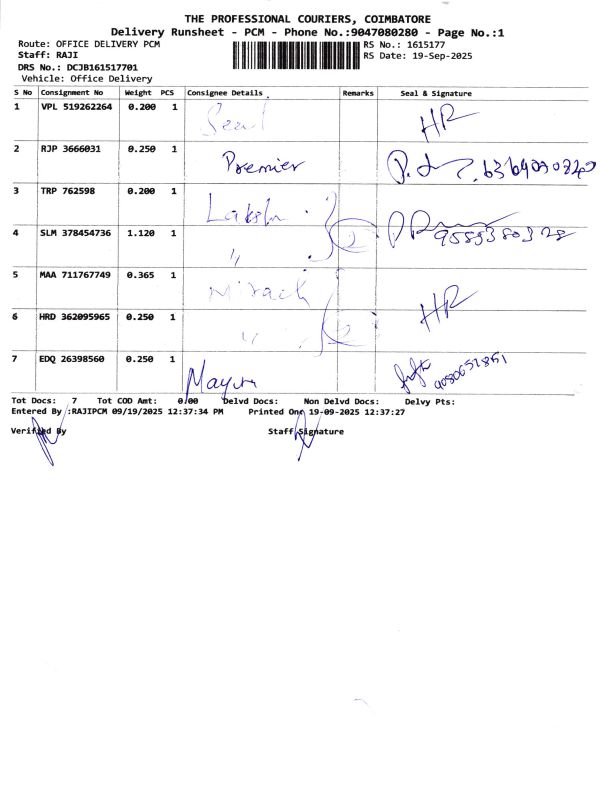 THE PROFESSIONAL COURIERS, COIMBATORE
Delivery Runsheet - PCM - Phone No.:9047080280 - Page No.:1
Route: OFFICE DELIVERY PCM
RS No.: 1615177
Staff: RAJI
RS Date: 19-Sep-2025
DRS No.: DCJB161517701
Vehicle: Office Delivery
S No Consignment No Weight PCS Consignee Details Remarks Seal & Signature
1 VPL 519262264 0.200 1 HR
2 RJP 3666031 0.250 1 Premier
3 TRP 762598 0.200 1
4 SLM 378454736 1.120 1 〃 2
5 MAA 711767749 0.365 1 HR
6 HRD 362095965 0.250 1 〃 2
7 EDQ 26398560 0.250 1
Tot Docs: 7 Tot COD Amt: 0.00 Delvd Docs: Non Delvd Docs: Delvy Pts:
Entered By :RAJIPCM 09/19/2025 12:37:34 PM Printed On: 19-09-2025 12:37:27
Verified By Staff Signature